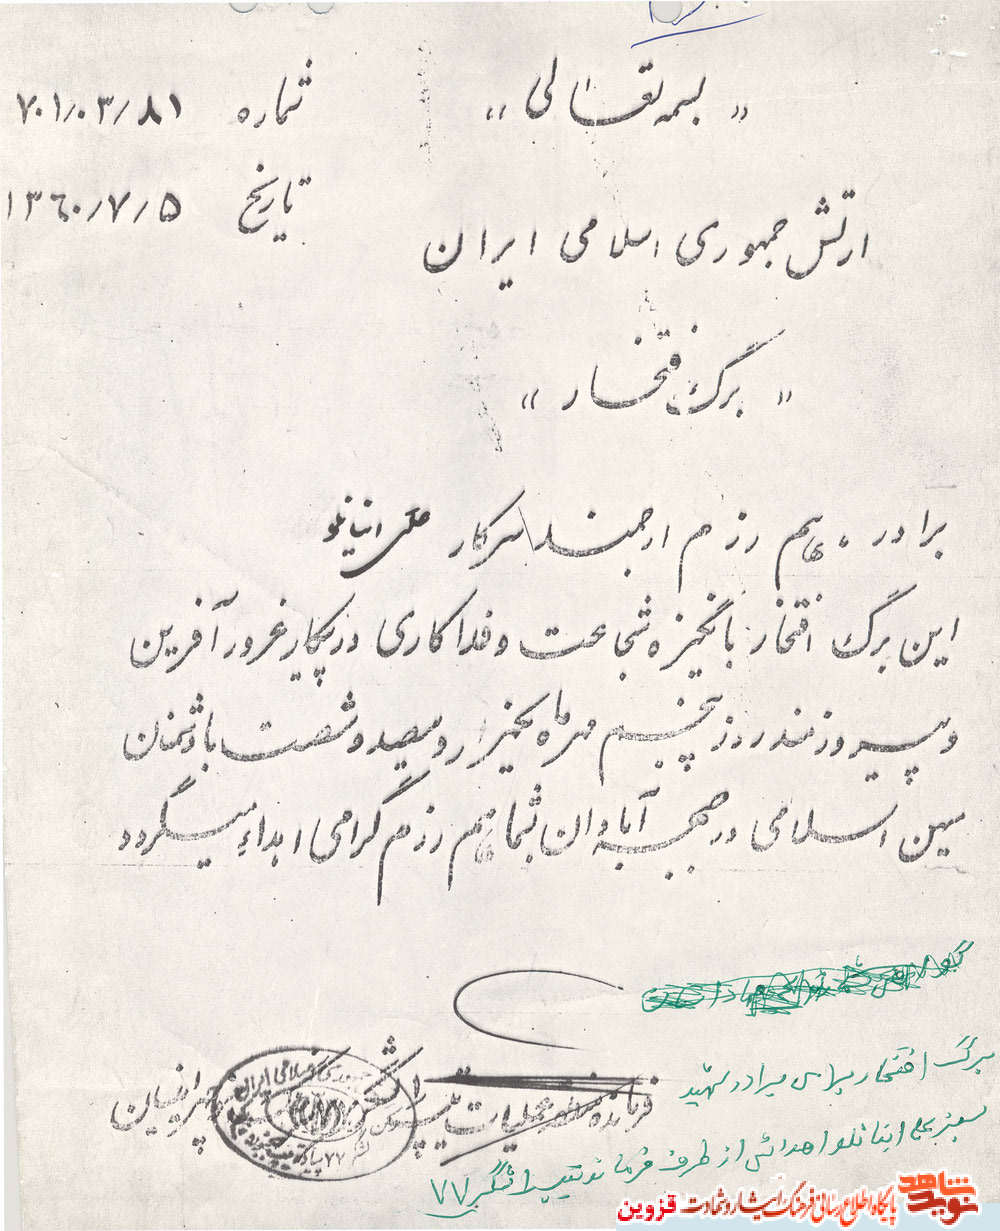 « بسمه تعالی »
شماره ۷۰۱/۰۳/۸۱
تاریخ ۱۳۶۰/۷/۵
ارتش جمهوری اسلامی ایران
« برگ افتخار »
برادر ، هم رزم ارجمند سرکار علی اینانلو
این برگ افتخار بانگیزه شجاعت و فداکاری در پیکار غرور آفرین
و پیروزمند روز پنجم مهر ماه یکهزار و سیصد و شصت با دشمنان
میهن اسلامی در جبهه آبادان بشما هم رزم گرامی اهداء میگردد
فرمانده عملیات
لشکر ۷۷ پیاده
برگ افتخار برای برادر شهید
علی اینانلو اهدائی از طرف فرمانده تیپ لشگر ۷۷
نوید شاهد
پایگاه اطلاع رسانی فرهنگ ایثار و شهادت قزوین